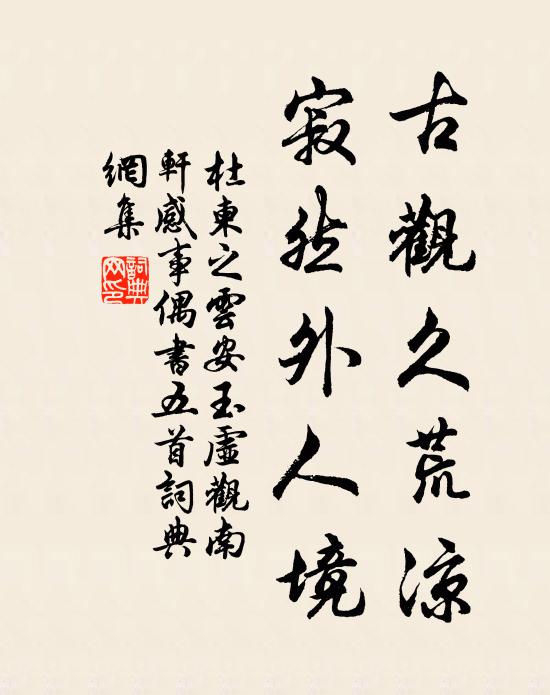 古觀久荒涼
寂然外人境
杜東之雲安玉虛觀南
軒感事偶書五首詞典
網集
詞典
网印